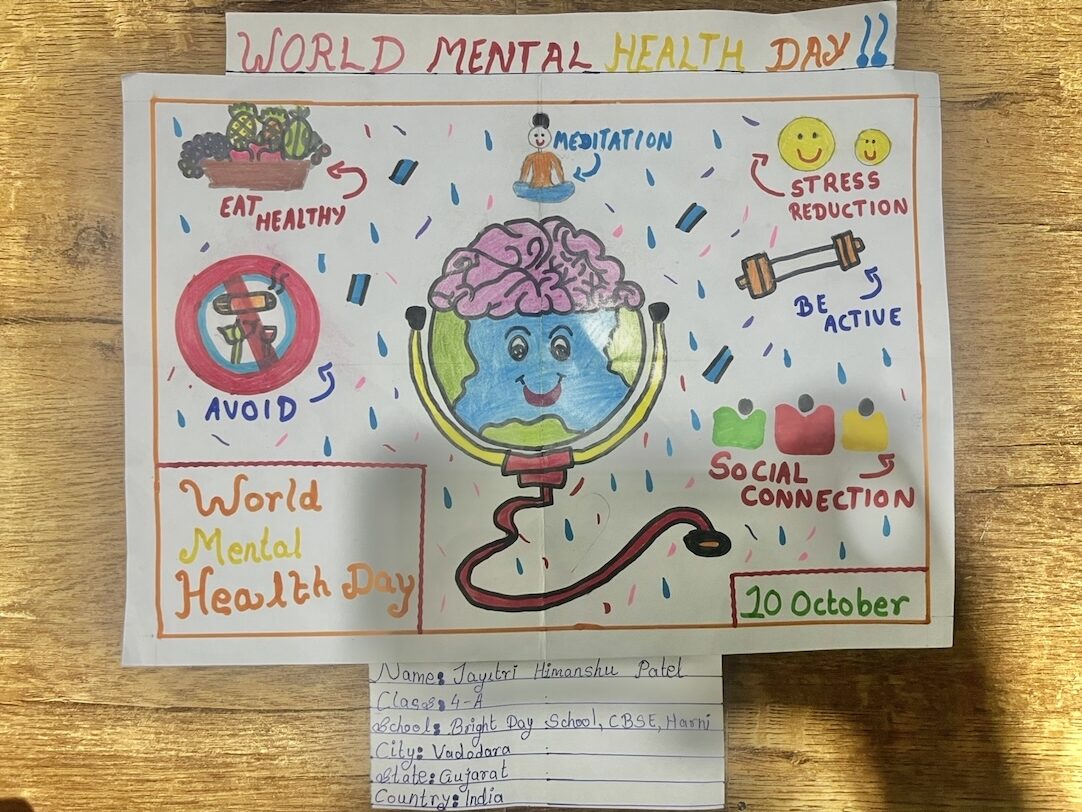 WORLD MENTAL HEALTH DAY!!
MEDITATION
EAT HEALTHY
STRESS
REDUCTION
BE
ACTIVE
AVOID
SOCIAL
CONNECTION
World
Mental
Health Day
10 October
Name: Jayitri Himanshu Patel
Class: 4-A
School: Bright Day School, CBSE, Harni
City: Vadodara
State: Gujarat
Country: India